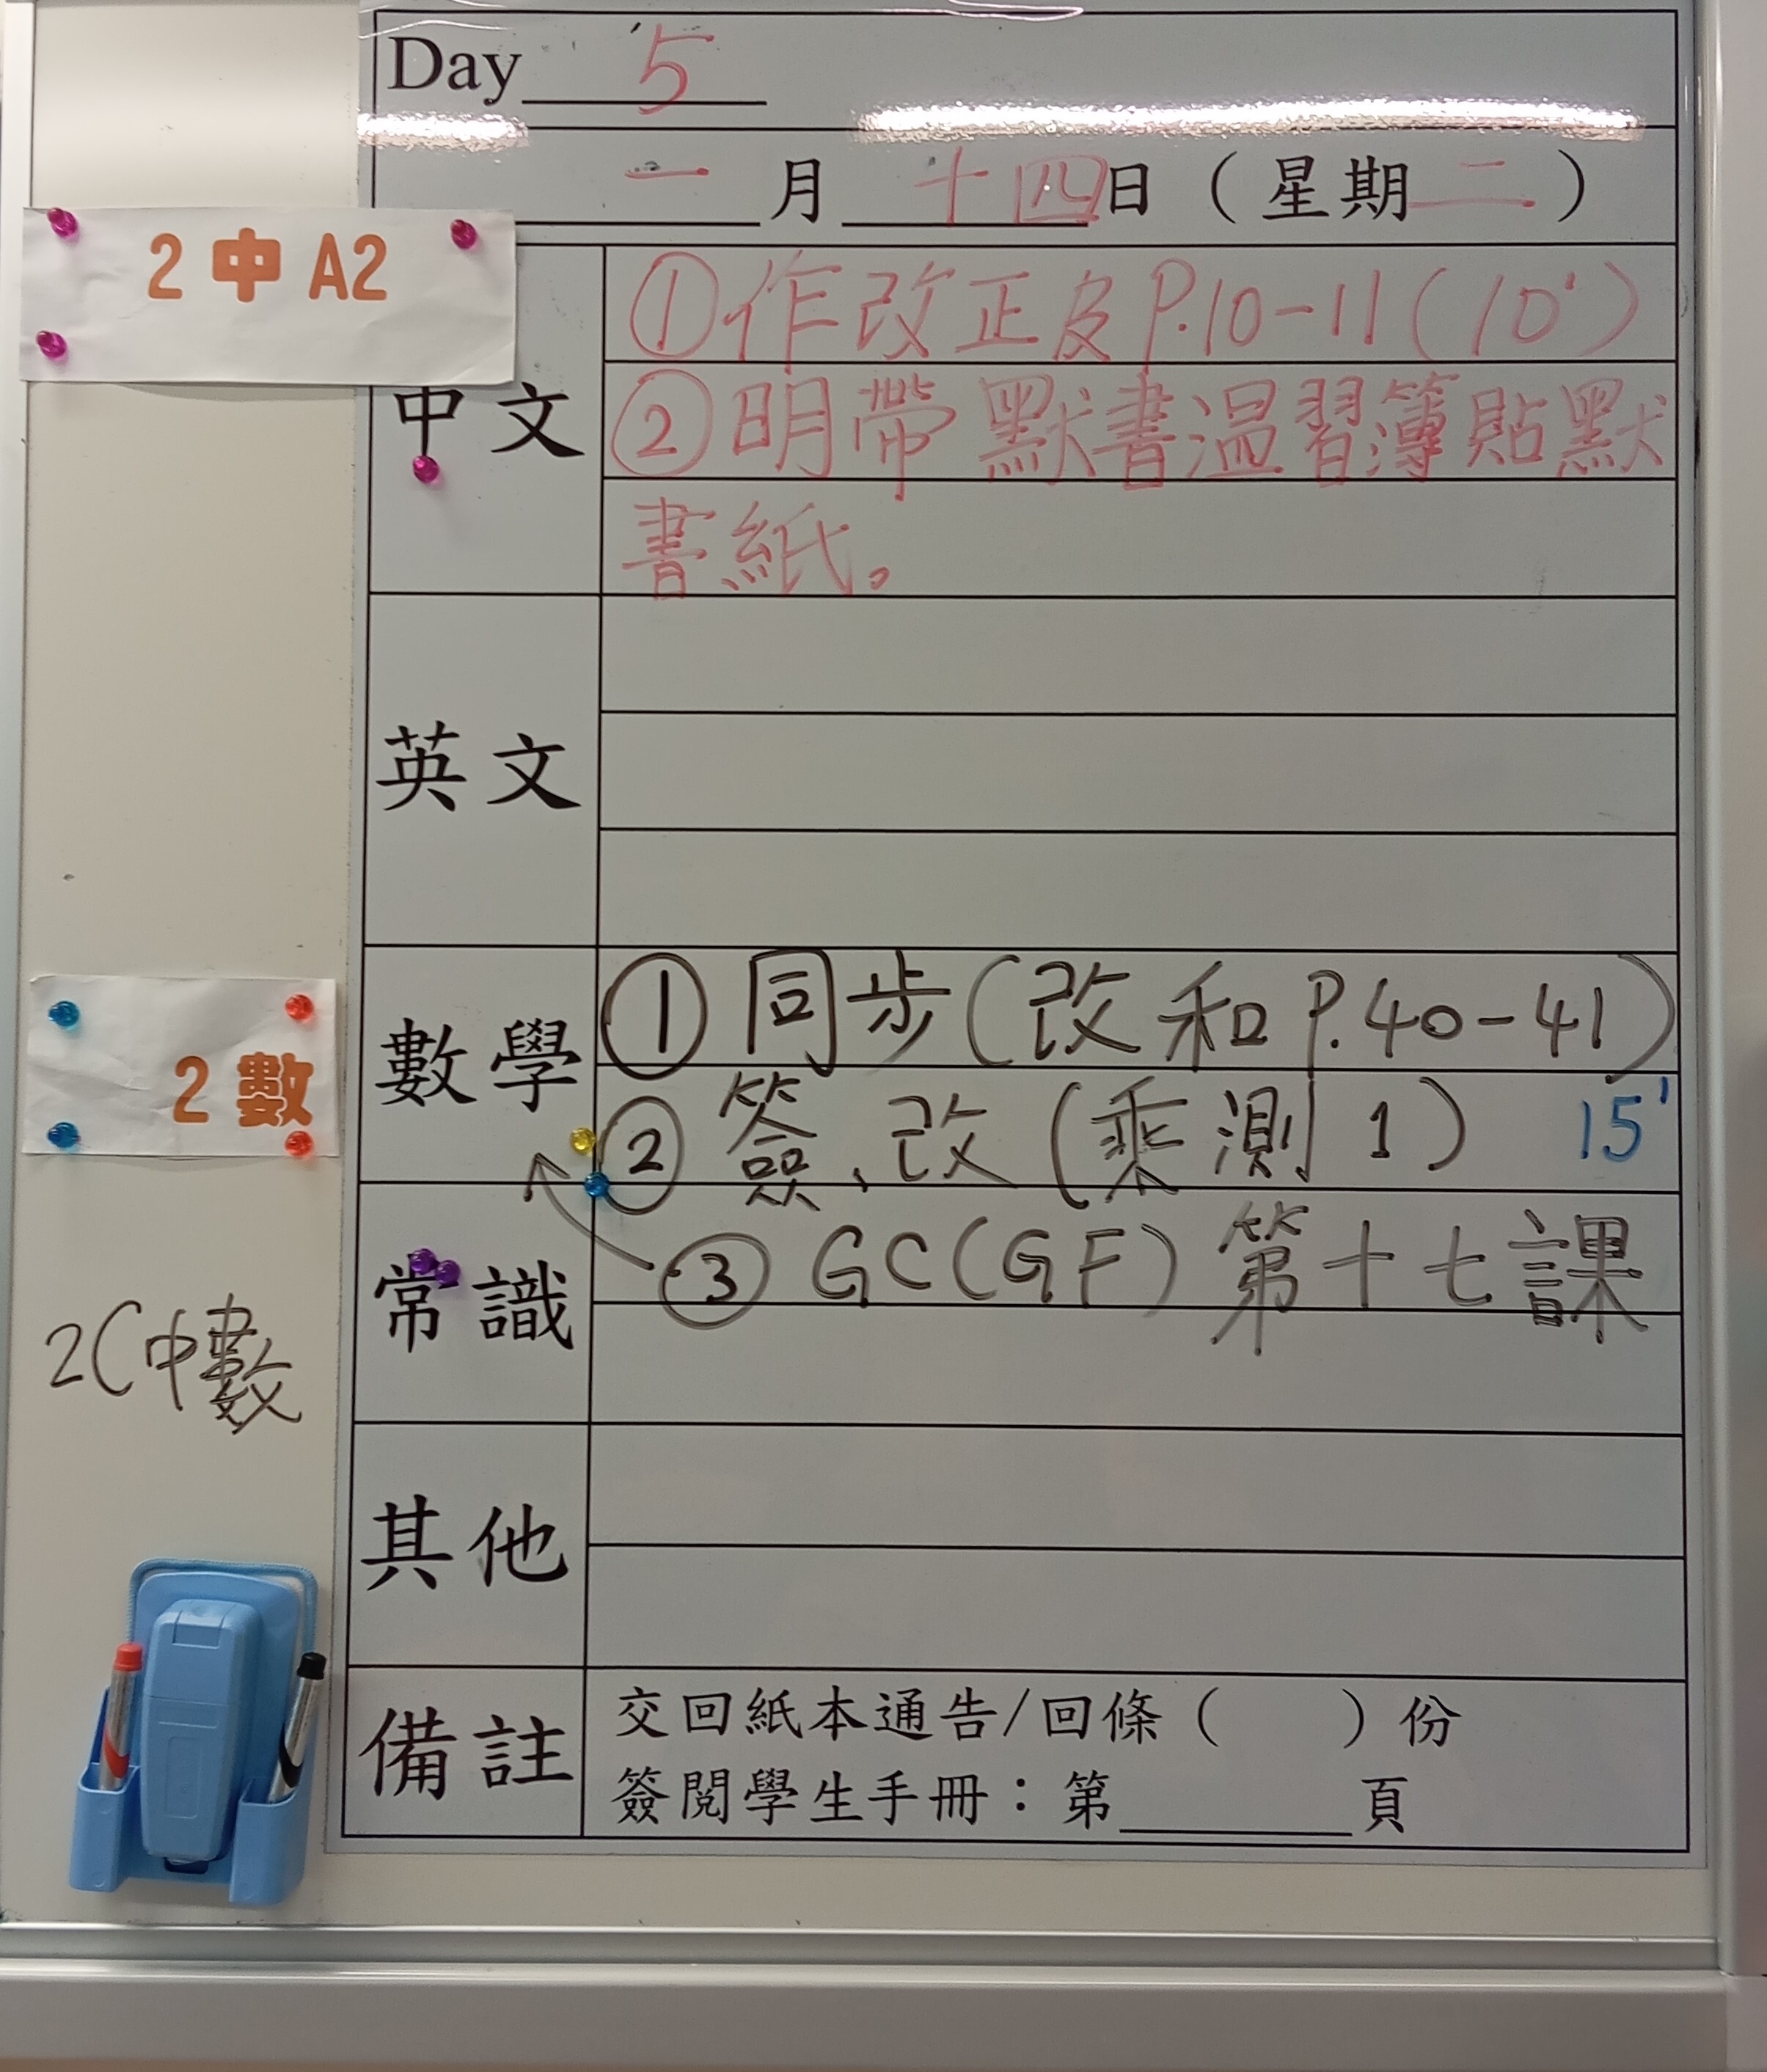 Day 5
一月十四日（星期二）
2中A2
中文
①作改正及P.10-11(10')
②明帶默書溫習簿貼默
書紙。
英文
數學
2數
①同步(改和P.40-41)
②簽、改(乘測1) 15'
常識
③GC(GF)第十七課
2C中數
其他
備註
交回紙本通告/回條（ ）份
簽閱學生手冊：第______頁